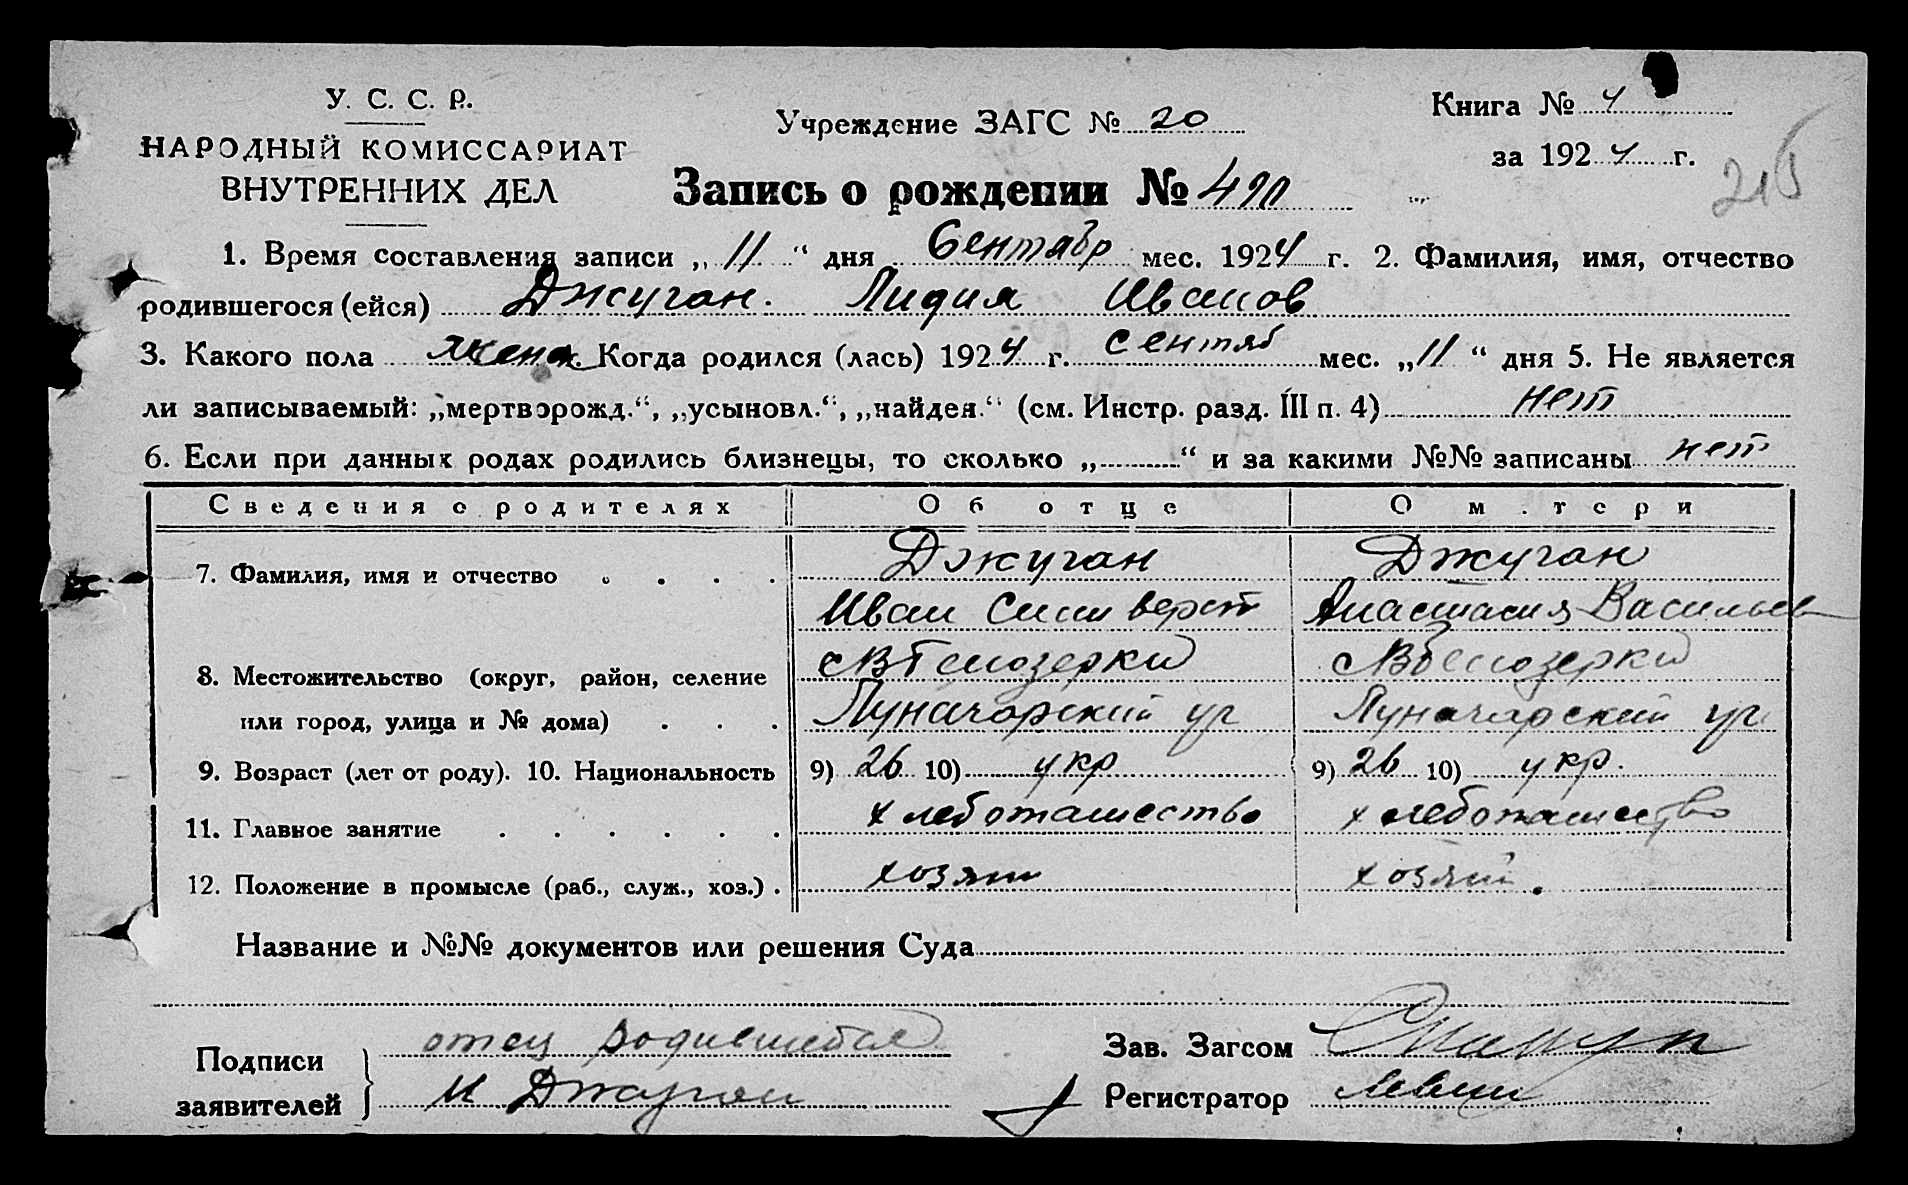 У. С. С. Р.
НАРОДНЫЙ КОМИССАРИАТ
ВНУТРЕННИХ ДЕЛ
Учреждение ЗАГС № 20
Запись о рождении №
Книга № 4
за 1924 г.
215
1. Время составления записи „11“ дня Сентябр мес. 1924 г. 2. Фамилия, имя, отчество
родившегося (ейся) Джуган. Лидия Иванов
3. Какого пола женск. Когда родился (лась) 1924 г. сентяб мес. „11“ дня 5. Не является
ли записываемый: „мертворожд.“, „усыновл.“, „найден.“ (см. Инстр. разд. III п. 4) нет
6. Если при данных родах родились близнецы, то сколько „ “ и за какими №№ записаны нет
Сведения о родителях Об отце О м.тери
7. Фамилия, имя и отчество Джуган Джуган
Иван Анастасия Васильев
8. Местожительство (округ, район, селение
или город, улица и № дома) Луначарский ул Луначарский ул
9. Возраст (лет от роду). 10. Национальность 9) 26 10) укр 9) 26 10) укр.
11. Главное занятие хлебопашество хлебопашество
12. Положение в промысле (раб., служ., хоз.) хозяин хозяин.
Название и №№ документов или решения Суда
Подписи заявителей отец
И Джуган
Зав. Загсом
Регистратор